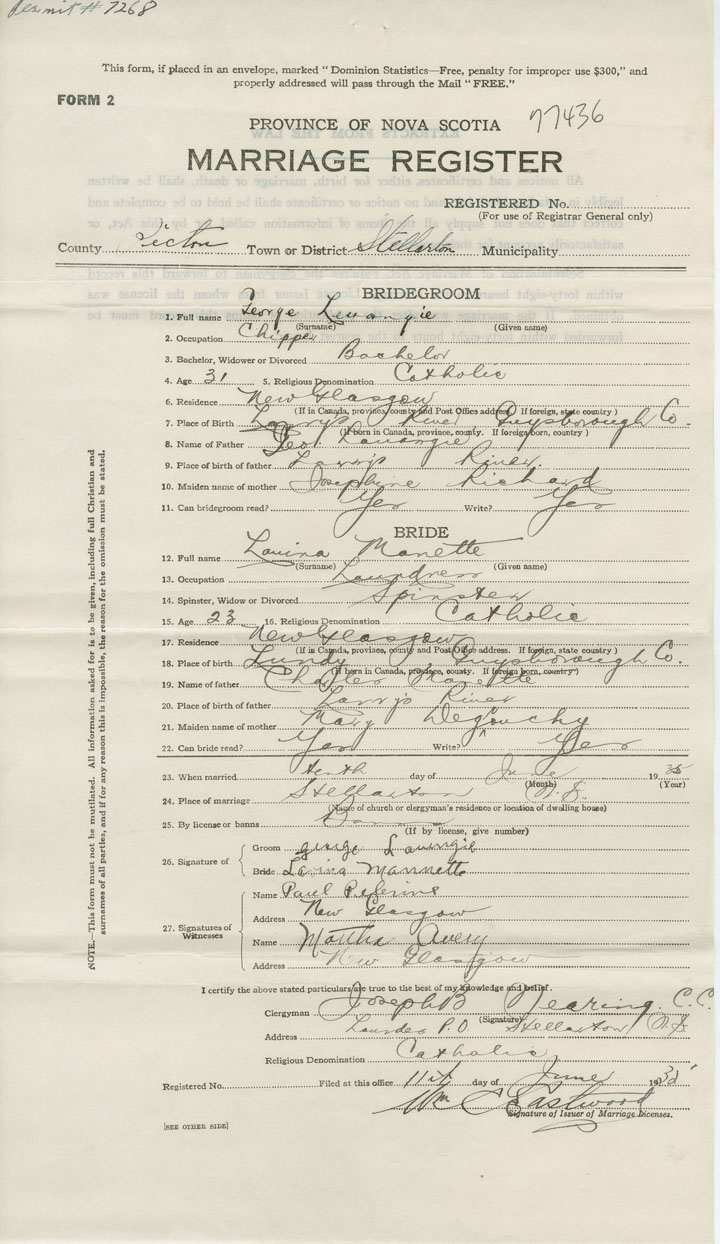 Permit # 7268
This form, if placed in an envelope, marked "Dominion Statistics—Free, penalty for improper use $300," and
properly addressed will pass through the Mail "FREE."
FORM 2
PROVINCE OF NOVA SCOTIA
77436
MARRIAGE REGISTER
REGISTERED No.
(For use of Registrar General only)
County Pictou Town or District Stellarton Municipality
BRIDEGROOM
1. Full name George Levangie
(Surname) (Given name)
2. Occupation Chipper
3. Bachelor, Widower or Divorced Bachelor
4. Age 31 5. Religious Denomination Catholic
6. Residence New Glasgow
(If in Canada, province, county and Post Office address. If foreign, state country)
7. Place of Birth Larrys River Guysborough Co.
(If born in Canada, province, county. If foreign born, country)
8. Name of Father Geo. Levangie
9. Place of birth of father Larrys River
10. Maiden name of mother Josephine Richard
11. Can bridegroom read? Yes Write? Yes
BRIDE
12. Full name Lavina Manette
(Surname) (Given name)
13. Occupation Laundress
14. Spinster, Widow or Divorced Spinster
15. Age 23 16. Religious Denomination Catholic
17. Residence New Glasgow
(If in Canada, province, county and Post Office address. If foreign, state country)
18. Place of birth Lundy Guysborough Co.
(If born in Canada, province, county. If foreign born, country)
19. Name of father Charles Manette
20. Place of birth of father Larrys River
21. Maiden name of mother Mary Degouchy
22. Can bride read? Yes Write? Yes
23. When married tenth day of June 1935
(Month) (Year)
24. Place of marriage Stellarton N.S.
(Name of church or clergyman's residence or location of dwelling house)
25. By license or banns
(If by license, give number)
26. Signature of
Groom george Levangie
Bride Lavina Mannette
27. Signatures of Witnesses
Name Paul
Address New Glasgow
Name Martha Avery
Address New Glasgow
I certify the above stated particulars are true to the best of my knowledge and belief.
Clergyman Joseph B Nearing. C.C.
(Signature)
Address Lourdes P.O Stellarton N.S.
Religious Denomination Catholic
Registered No. Filed at this office 11th day of June 1935
Wm C Eastwood
Signature of Issuer of Marriage Licenses.
[SEE OTHER SIDE]
NOTE.—This form must not be mutilated. All information asked for is to be given, including full Christian and
surnames of all parties, and if for any reason this is impossible, the reason for the omission must be stated.